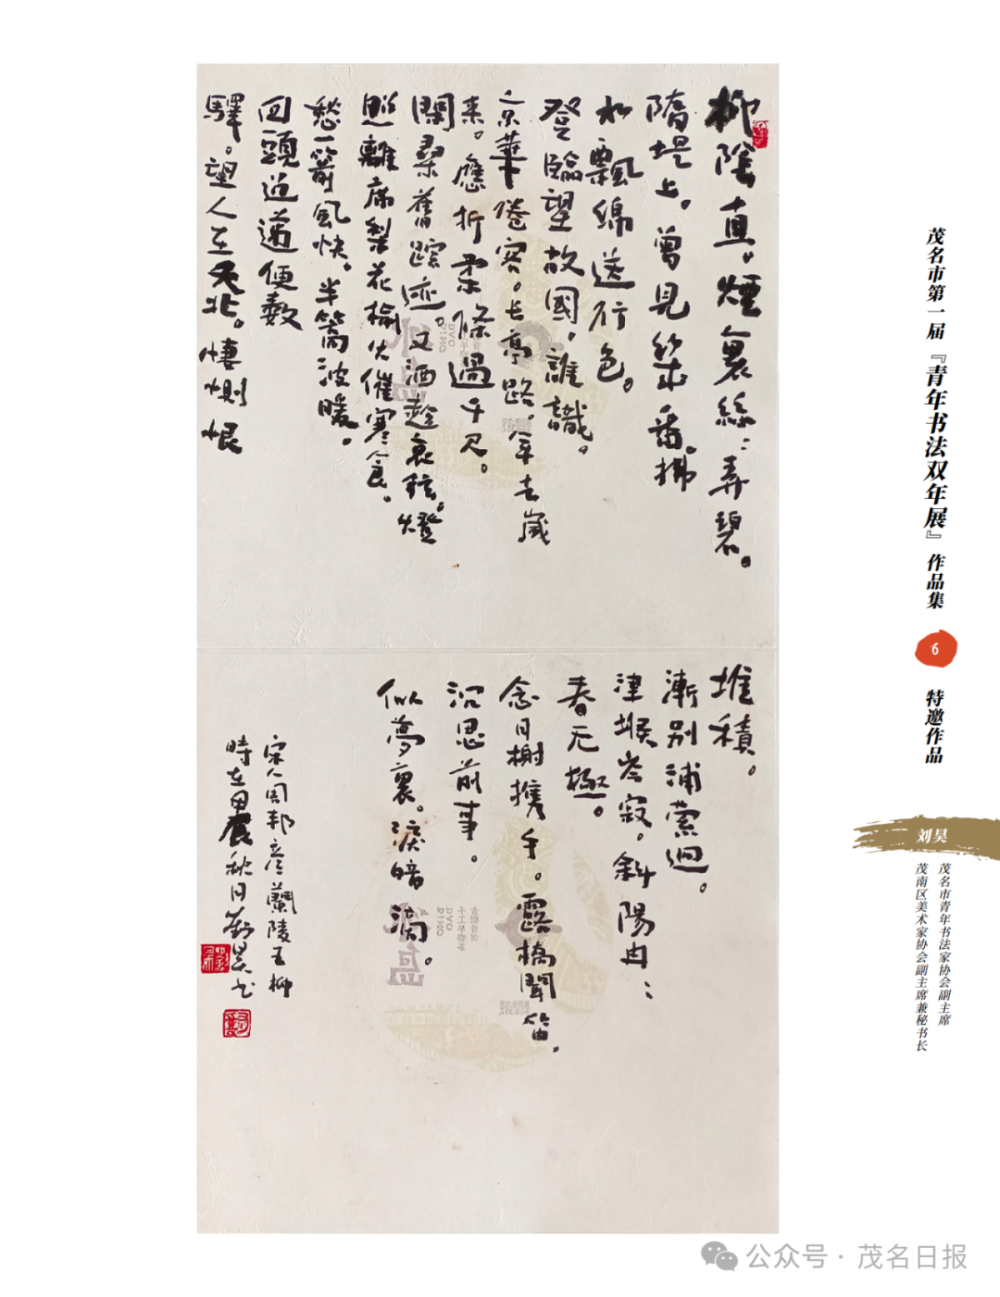 柳陰直。煙裏絲：弄碧。
隋堤上。曾見幾番。拂
水飄綿送行色。
登臨望故國。誰識。
京華倦客。长亭路。年去歲
来。應折柔條過千尺。
閑尋舊蹤迹。又酒趁哀弦。燈
照離席梨花榆火催寒食。
愁一箭風快。半篙波暖。
回頭迢遞便數
驛。望人在天北。悽惻恨
堆積。
漸別浦縈迴。
津堠岑寂。斜陽冉：
春无極。
念月榭携手。露橋聞笛。
沉思前事。
似夢裏。淚暗滴。
宋人周邦彦蘭陵王柳
時在甲辰秋月劉昊书
茂名市第一届『青年书法双年展』作品集
6
特邀作品
刘昊
茂名市青年书法家协会副主席
茂南区美术家协会副主席兼秘书长
公众号·茂名日报